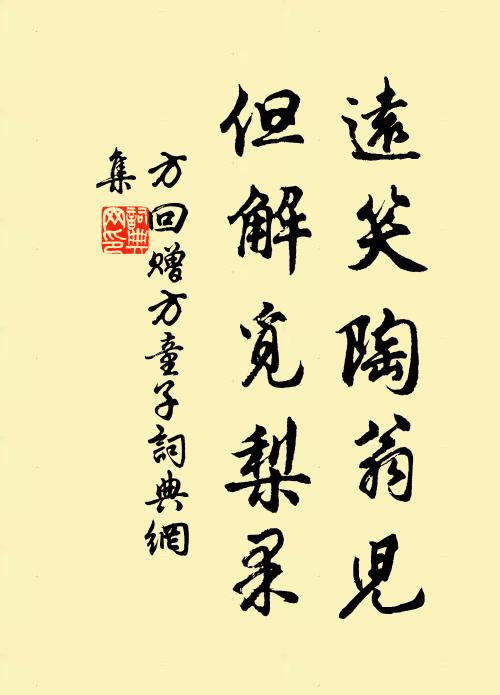 遠笑陶翁兒
但解覓梨果
方回贈方童子詞典網
集
詞典网印